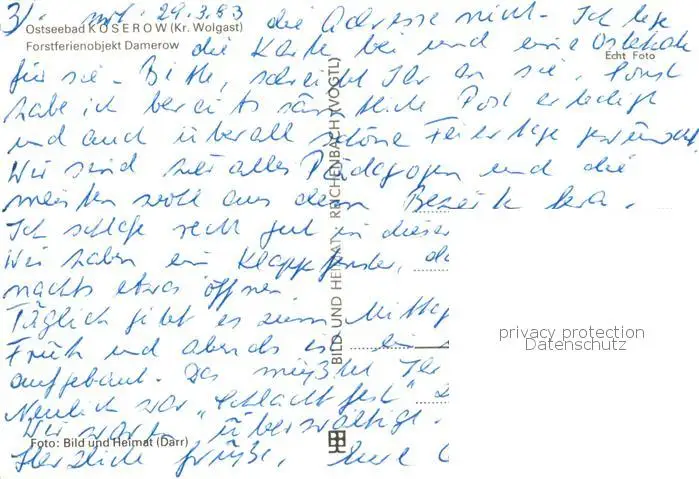 3) mit 29.3.83 die Adresse nicht. Ich lege
Ostseebad KOSEROW (Kr. Wolgast)
Forstferienobjekt Damerow
die Karte bei und eine Osterkarte
Echt Foto
für sie. Bitte, schreibt Ihr an sie. Sonst
habe ich bereits sämtliche Post erledigt
und auch überall schöne Feiertage gewünscht.
Wir sind hier alles Pädagogen und die
meisten wohl aus dem Bezirk
Ich schlafe recht gut in dieser
Wir haben ein Klappfenster, da
nachts etwas öffnen
Täglich gibt es zum Mittag
Früh und abends ist ein
aufgebaut. Das müßtet Ihr
Neulich war „Schlachtfest"
Wir waren überwältigt.
Foto: Bild und Heimat (Darr)
Herzliche Grüße, Eure
BILD UND HEIMAT · REICHENBACH (VOGTL)
privacy protection
Datenschutz